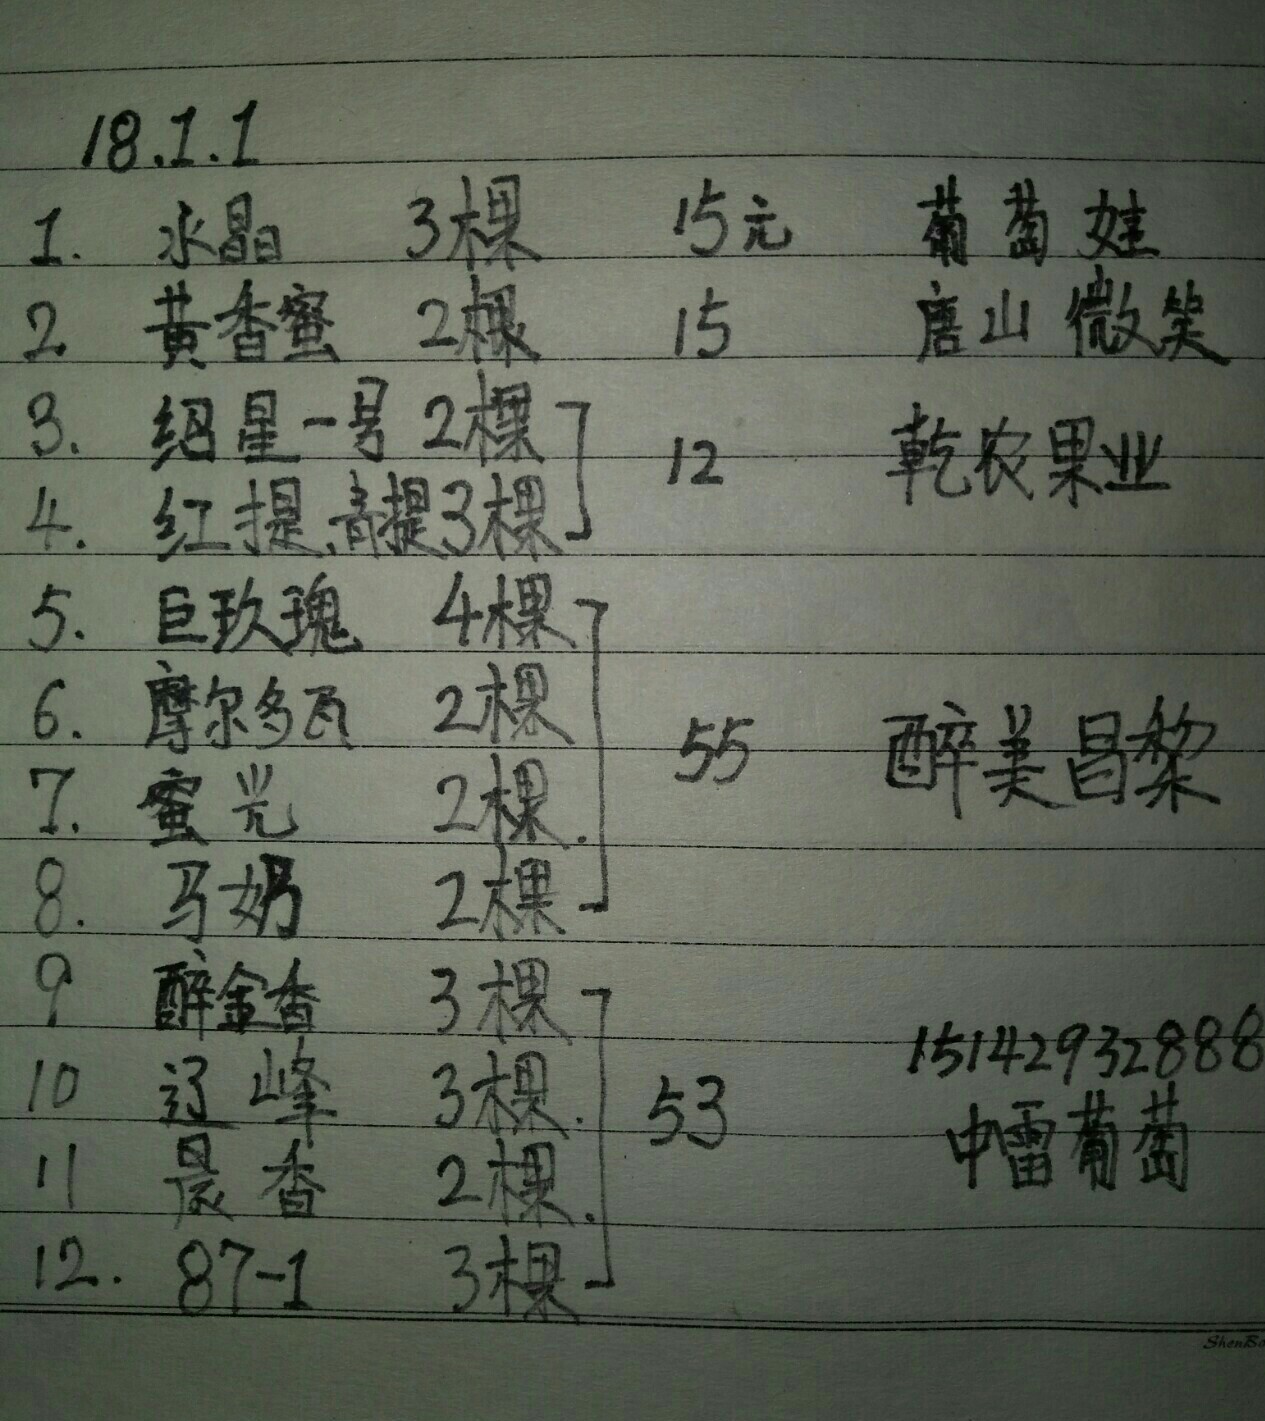 18.1.1
1. 水晶 3棵 15元 葡萄娃
2 黄香蜜 2棵 15 唐山微笑
3. 绍星一号 2棵
12 乾农果业
4. 红提、青提 3棵
5. 巨玫瑰 4棵
6. 摩尔多瓦 2棵
55 醉美昌黎
7. 蜜光 2棵.
8. 马奶 2棵
9 醉金香 3棵
15142932888
10 辽峰 3棵.
53 中雷葡萄
11 晨香 2棵.
12. 87-1 3棵